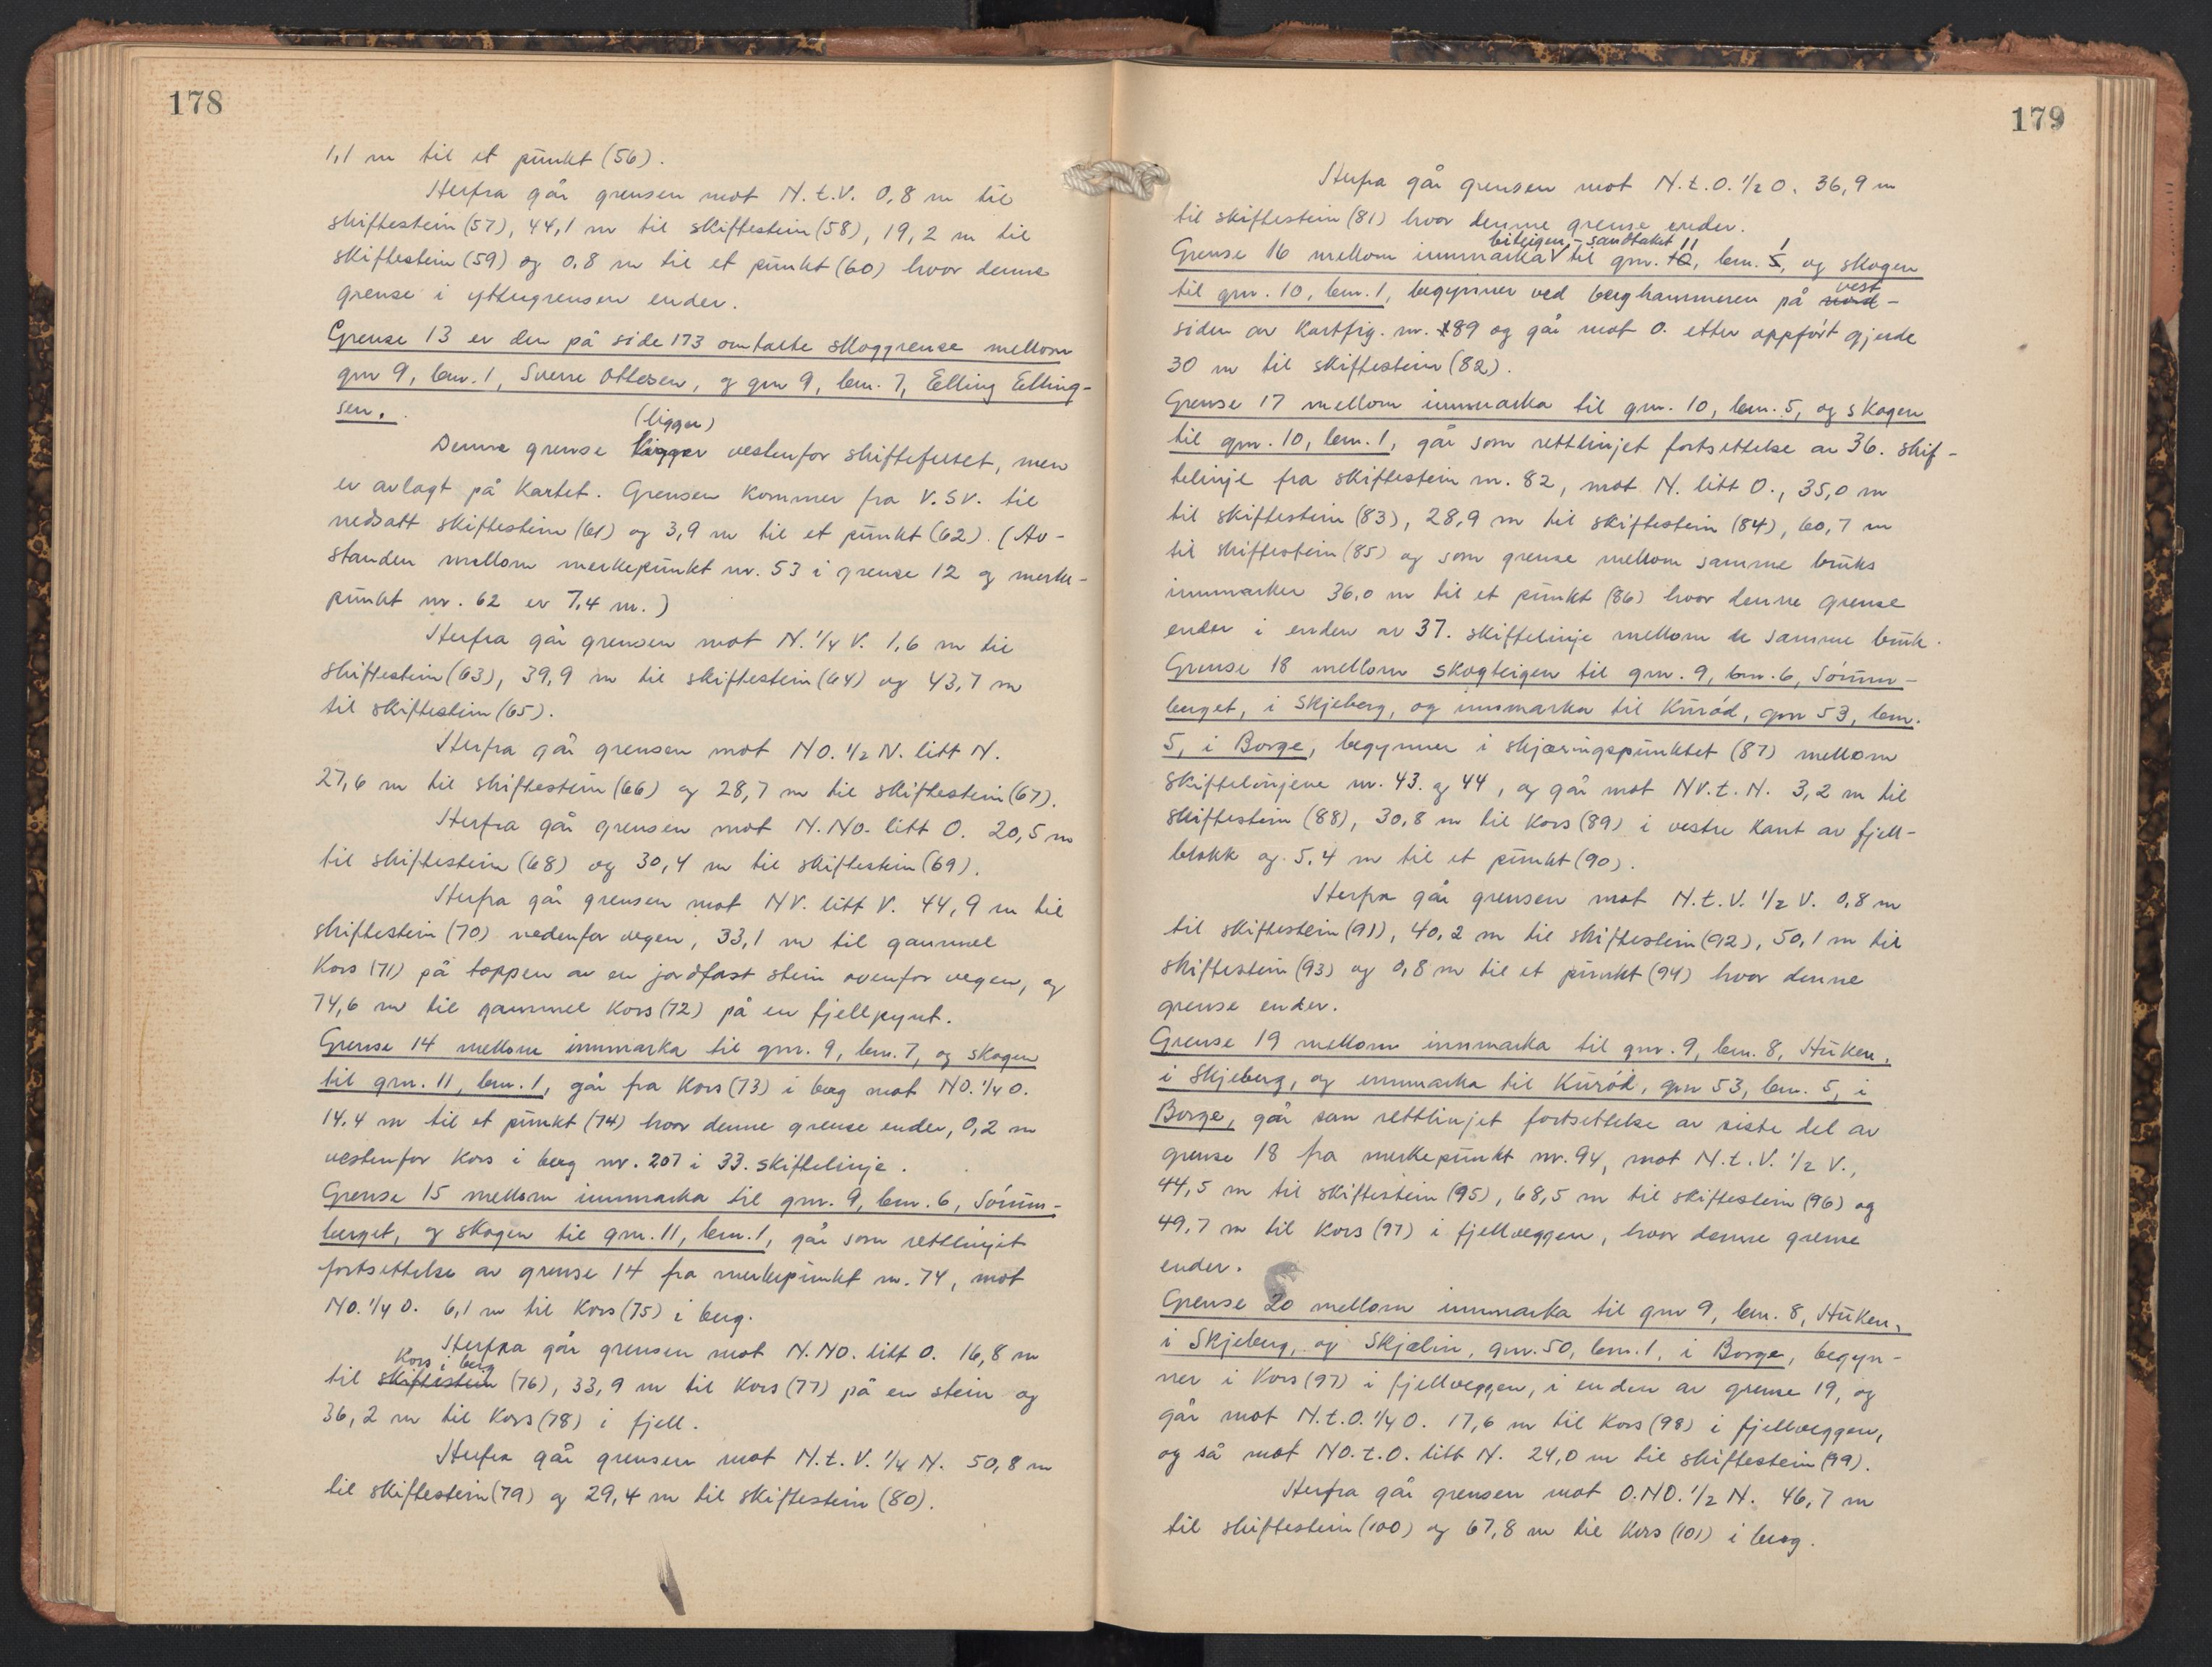 178
1,1 m til et punkt (56).
Herfra går grensen mot N.t.V. 0,8 m til
skiftestein (57), 44,1 m til skiftestein (58), 19,2 m til
skiftestein (59) og 0,8 m til et punkt (60) hvor denne
grense i yttergrensen ender.
Grense 13 er den på side 173 omtalte skoggrense mellom
gnr 9, bnr. 1, Sverre Ottesen, og gnr 9, bnr. 7, Elling Elling-
sen.
(ligger)
Denne grense ligger vestenfor skiftefeltet, men
er avlagt på kartet. Grensen kommer fra V.SV. til
nedsatt skiftestein (61) og 3,9 m til et punkt (62). (Av-
standen mellom merkepunkt nr. 53 i grense 12 og merke-
punkt nr. 62 er 7,4 m.)
Herfra går grensen mot N. 1/4 V. 1,6 m til
skiftestein (63), 39,9 m til skiftestein (64) og 43,7 m
til skiftestein (65).
Herfra går grensen mot NO. 1/2 N. litt N.
27,6 m til skiftestein (66) og 28,7 m til skiftestein (67).
Herfra går grensen mot N.NO. litt O. 20,5 m
til skiftestein (68) og 30,4 m til skiftestein (69).
Herfra går grensen mot NV. litt V. 44,9 m til
skiftestein (70) nedenfor vegen, 33,1 m til gammel
kors (71) på toppen av en jordfast stein ovenfor vegen, og
74,6 m til gammel kors (72) på en fjellpynt.
Grense 14 mellom innmarka til gnr. 9, bnr. 7, og skogen
til gnr. 11, bnr. 1, går fra kors (73) i berg mot NO. 1/4 O.
14,4 m til et punkt (74) hvor denne grense ender, 0,2 m
vestenfor kors i berg nr. 207 i 33. skiftelinje.
Grense 15 mellom innmarka til gnr. 9, bnr. 6, Sörum-
berget, og skogen til gnr. 11, bnr. 1, går som rettlinjet
fortsettelse av grense 14 fra merkepunkt nr. 74, mot
NO. 1/4 O. 6,1 m til kors (75) i berg.
Herfra går grensen mot N.NO. litt O. 16,8 m
kors i berg
til skiftestein (76), 33,9 m til kors (77) på en stein og
36,2 m til kors (78) i fjell.
Herfra går grensen mot N.t.V. 1/4 N. 50,8 m
til skiftestein (79) og 29,4 m til skiftestein (80).
179
Herfra går grensen mot N.t.O. 1/2 O. 36,9 m
til skiftestein (81) hvor denne grense ender.
biteigen - sandtaket 11 1
Grense 16 mellom innmarka V til gnr. 10, bnr. 5, og skogen
til gnr. 10, bnr. 1, begynner ved berghammeren på nord-
vest
siden av kartfig. nr. 189 og går mot O. etter oppfört gjerde
30 m til skiftestein (82).
Grense 17 mellom innmarka til gnr. 10, bnr. 5, og skogen
til gnr. 10, bnr. 1, går som rettlinjet fortsettelse av 36. skif-
telinje fra skiftestein nr. 82, mot N. litt O., 35,0 m
til skiftestein (83), 28,9 m til skiftestein (84), 60,7 m
til skiftestein (85) og som grense mellom samme bruks
innmarker 36,0 m til et punkt (86) hvor denne grense
ender i enden av 37. skiftelinje mellom de samme bruk.
Grense 18 mellom skogteigen til gnr. 9, bnr. 6, Sörum-
berget, i Skjeberg, og innmarka til Kuröd, gnr 53, bnr.
5, i Borge, begynner i skjæringspunktet (87) mellom
skiftelinjene nr. 43. og 44, og går mot NV.t.N. 3,2 m til
skiftestein (88), 30,8 m til kors (89) i vestre kant av fjell-
blokk og 5,4 m til et punkt (90).
Herfra går grensen mot N.t.V. 1/2 V. 0,8 m
til skiftestein (91), 40,2 m til skiftestein (92), 50,1 m til
skiftestein (93) og 0,8 m til et punkt (94) hvor denne
grense ender.
Grense 19 mellom innmarka til gnr. 9, bnr. 8, Huken,
i Skjeberg, og innmarka til Kuröd, gnr 53, bnr. 5, i
Borge, går som rettlinjet fortsettelse av siste del av
grense 18 fra merkepunkt nr. 94, mot N.t.V. 1/2 V.,
44,5 m til skiftestein (95), 68,5 m til skiftestein (96) og
49,7 m til kors (97) i fjellveggen, hvor denne grense
ender.
Grense 20 mellom innmarka til gnr 9, bnr. 8, Huken,
i Skjeberg, og Skjælin, gnr. 50, bnr. 1, i Borge, begyn-
ner i kors (97) i fjellveggen, i enden av grense 19, og
går mot N.t.O. 1/4 O. 17,6 m til kors (98) i fjellveggen,
og så mot NO.t.O. litt N. 24,0 m til skiftestein (99).
Herfra går grensen mot O.NO. 1/2 N. 46,7 m
til skiftestein (100) og 67,8 m til kors (101) i berg.